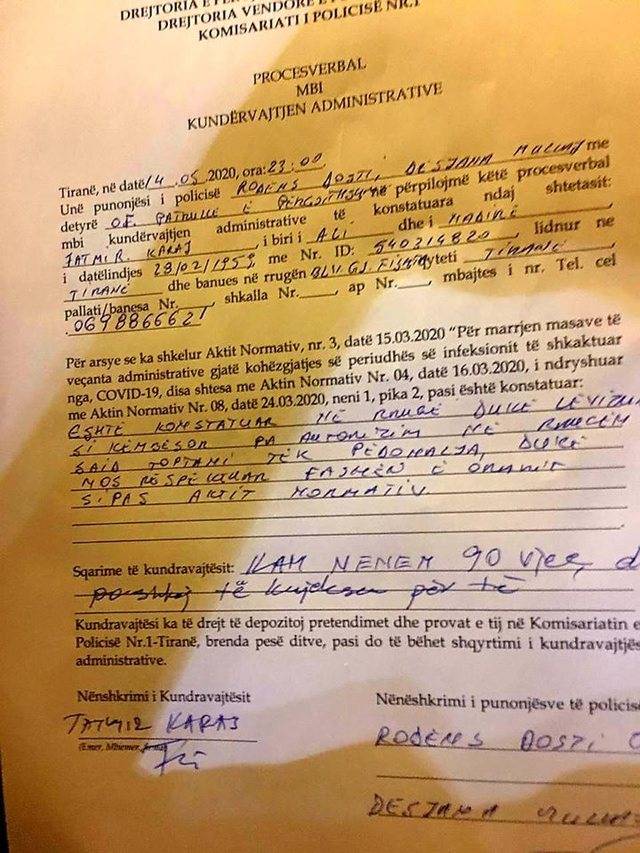 DREJTORIA VENDORE E
KOMISARIATI I POLICISË NR.1
PROCESVERBAL
MBI
KUNDËRVAJTJEN ADMINISTRATIVE
Tiranë, në datë 14.05.2020, ora: 23:00
Unë punonjësi i policisë RODENS DOSTI, DESTANA me
detyrë OF. PATRULLE E përpilojmë këtë procesverbal
mbi kundërvajtjen administrative të konstatuara ndaj shtetasit:
JATMIR KARAJ, i biri i ALI dhe i MADIRE, lidnur ne
TIRANË i datëlindjes 28/02/1959, me Nr. ID: 540314820
dhe banues në rrugën BLV GJ FISHTA qyteti TIRANË
pallati/banesa Nr.____, shkalla Nr.____, ap Nr.____, mbajtes i nr. Tel. cel
0698866621
Për arsye se ka shkelur Aktit Normativ, nr. 3, datë 15.03.2020 "Për marrjen masave të
veçanta administrative gjatë kohëzgjatjes së periudhës së infeksionit të shkaktuar
nga, COVID-19, disa shtesa me Aktin Normativ Nr. 04, datë 16.03.2020, i ndryshuar
me Aktin Normativ Nr. 08, datë 24.03.2020, neni 1, pika 2, pasi është konstatuar:
ËSHTË KONSTATUAR NË RRUGË DUKE LËVIZUR
SI KËMBËSOR PA AUTORIZIM NË RRUGËN
SAID TOPTANI TEK PEDONALJA, DUKE
MOS RESPEKTUAR FASHËN E ORARIT
SIPAS AKTIT NORMATIV.
Sqarime të kundravajtësit: KAM NENEN 90 vjeç, d
të kujdesem për të
Kundravajtësi ka të drejt të depozitoj pretendimet dhe provat e tij në Komisariatin e
Policisë Nr.1-Tiranë, brenda pesë ditve, pasi do të bëhet shqyrtimi i kundravajtjës
administrative.
Nënshkrimi i Kundravajtësit
Nënëshkrimi i punonjësve të policisë
JATMIR KARAJ
(Emer, Mbiemer, firma)
RODENS DOSTI
DESTANA